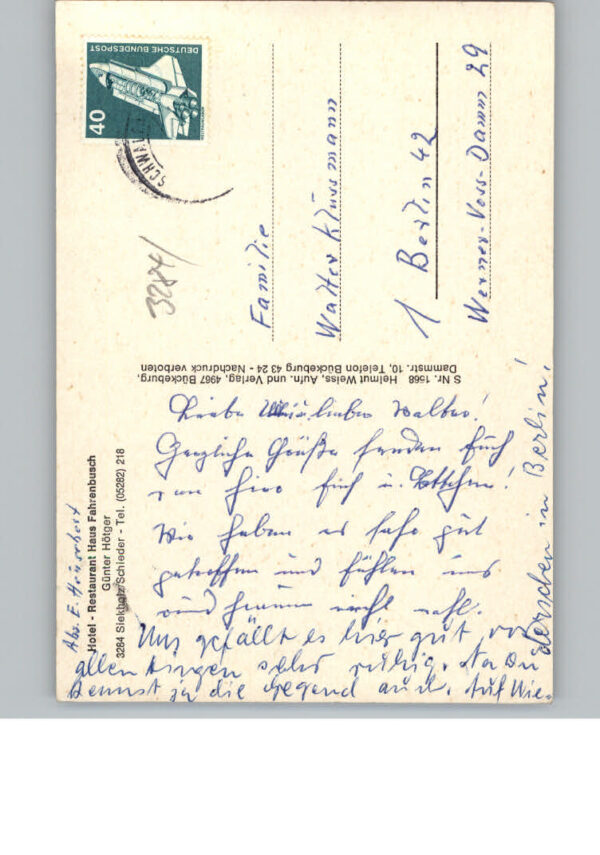 DEUTSCHE BUNDESPOST
40
SCHWAL
3284/
Familie
Walter Klussmann
1 Berlin 42
Werner-Voss-Damm 29
S Nr. 1568 Helmut Weiss, Aufn. und Verlag, 4967 Bückeburg,
Dammstr. 10, Telefon Bückeburg 43 24 - Nachdruck verboten
Hotel - Restaurant Haus Fahrenbusch
Günter Hötger
3284 Siekholz/Schieder - Tel. (05282) 218
Abs. E.
Liebe lieber Walter!
Herzliche Grüße senden Euch
von hier Euch u.
Wir haben es sehr gut
getroffen und fühlen uns
wohl.
Uns gefällt es hier gut, vor
allen Dingen sehr ruhig. Na Du
kennst ja die Gegend auch. Auf Wie-
dersehen in Berlin!